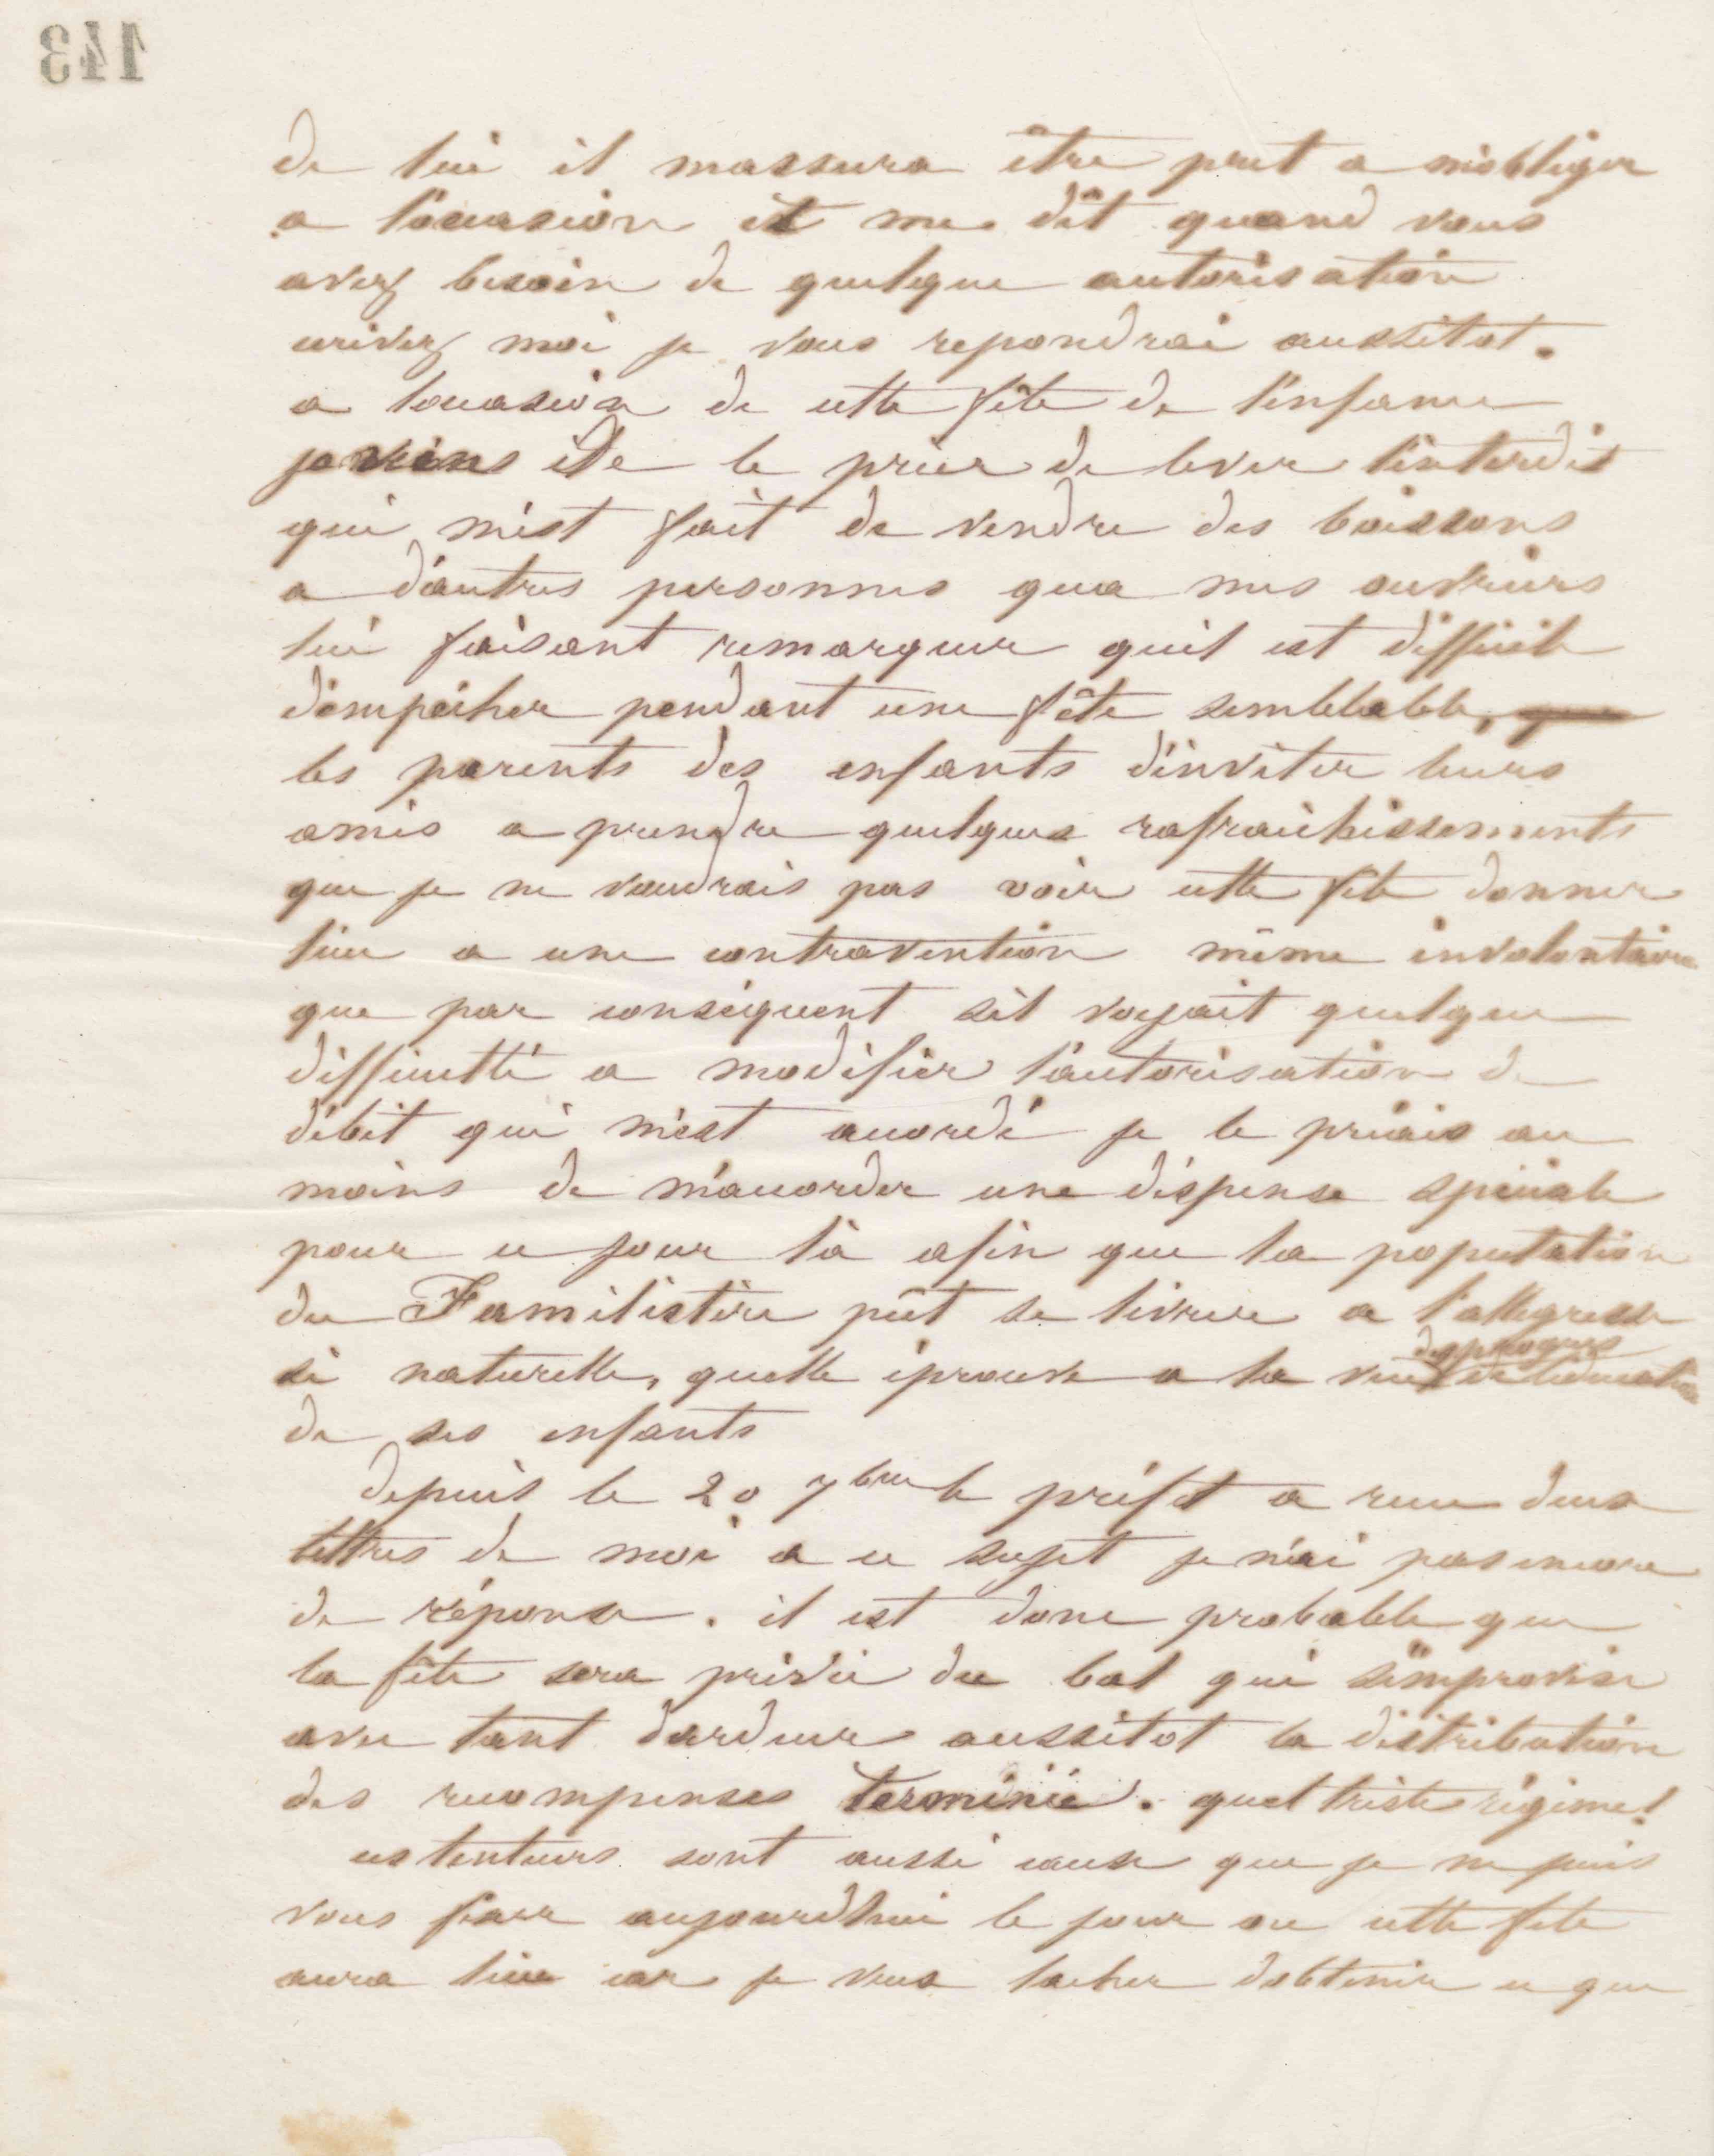 143
de lui il massura être pret a m'obliger
a l'occasion et me dit quand vous
avez besoin de quelque autorisation
ecrivez moi je vous repondrai aussitot.
a loccasion de cette fête de l'enfance
je viens de le prier de lever l'interdit
qui m'est fait de vendre des boissons
a d'autres personnes qua mes ouvriers
lui faisant remarquer quil est difficile
d'empêcher pendant une fête semblable,
les parents des enfants d'inviter leurs
amis a prendre quelques rafraichissements
que je ne voudrais pas voir cette fête donner
lieu a une contravention même involontaire
que par conséquent sil voyait quelque
difficulté a modifier l'autorisation de
débit qui m'est accordé je le priais au
moins de m'accorder une dispense speciale
pour ce jour là afin que la population
du Familistère pût se livrer a l'allegresse
si naturelle, quelle éprouve a la vue des progres de l'education
de ses enfants
depuis le 20 7bre le préfet a recu deux
lettres de moi a ce sujet je n'ai pas encore
de réponse. il est donc probable que
la fête sera privée du bal qui s'improvise
avec tant dardeur aussitot la distribution
des recompenses terminée. quel triste régime!
ces lenteurs sont aussi cause que je ne puis
vous fixer aujourdhui le jour ou cette fete
aura lieu car je veux tacher d'obtenir ce que